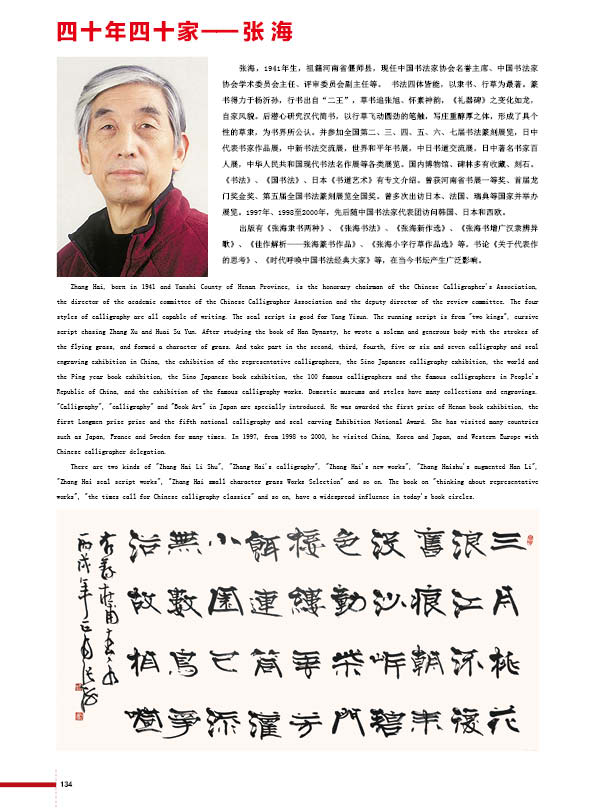 四十年四十家——张 海
张海，1941年生，祖籍河南省偃师县，现任中国书法家协会名誉主席、中国书法家
协会学术委员会主任、评审委员会副主任等。 书法四体皆能，以隶书、行草为最著。篆
书得力于杨沂孙，行书出自“二王”，草书追张旭、怀素神韵，《礼器碑》之变化如龙，
自家风貌。后潜心研究汉代简书，以行草飞动圆劲的笔触，写庄重醇厚之体，形成了具个
性的草隶，为书界所公认。并参加全国第二、三、四、五、六、七届书法篆刻展览，日中
代表书家作品展，中新书法交流展，世界和平年书展，中日书道交流展，日中著名书家百
人展，中华人民共和国现代书法名作展等各类展览。国内博物馆、碑林多有收藏、刻石。
《书法》、《国书法》、日本《书道艺术》有专文介绍。曾获河南省书展一等奖、首届龙
门奖金奖、第五届全国书法篆刻展览全国奖。曾多次出访日本、法国、瑞典等国家并举办
展览。1997年、1998至2000年，先后随中国书法家代表团访问韩国、日本和西欧。
出版有《张海隶书两种》、《张海书法》、《张海新作选》、《张海书增广汉隶辨异
歌》、《佳作解析——张海篆书作品》、《张海小字行草作品选》等。书论《关于代表作
的思考》、《时代呼唤中国书法经典大家》等，在当今书坛产生广泛影响。
Zhang Hai, born in 1941 and Yanshi County of Henan Province, is the honorary chairman of the Chinese Calligrapher's Association,
the director of the academic committee of the Chinese Calligrapher Association and the deputy director of the review committee. The four
styles of calligraphy are all capable of writing. The seal script is good for Yang Yisun. The running script is from "two kings", cursive
script chasing Zhang Xu and Huai Su Yun. After studying the book of Han Dynasty, he wrote a solemn and generous body with the strokes of
the flying grass, and formed a character of grass. And take part in the second, third, fourth, five or six and seven calligraphy and seal
engraving exhibition in China, the exhibition of the representative calligraphers, the Sino Japanese calligraphy exhibition, the world and
the Ping year book exhibition, the Sino Japanese book exhibition, the 100 famous calligraphers and the famous calligraphers in People's
Republic of China, and the exhibition of the famous calligraphy works. Domestic museums and steles have many collections and engravings.
"Calligraphy", "calligraphy" and "Book Art" in Japan are specially introduced. He was awarded the first prize of Henan book exhibition, the
first Longmen prize prize and the fifth national calligraphy and seal carving Exhibition National Award. She has visited many countries
such as Japan, France and Sweden for many times. In 1997, from 1998 to 2000, he visited China, Korea and Japan, and Western Europe with
Chinese calligrapher delegation.
There are two kinds of "Zhang Hai Li Shu", "Zhang Hai's calligraphy", "Zhang Hai's new works", "Zhang Haishu's augmented Han Li",
"Zhang Hai seal script works", "Zhang Hai small character grass Works Selection" and so on. The book on "thinking about representative
works", "the times call for Chinese calligraphy classics" and so on, have a widespread influence in today's book circles.
三月桃花
浪江流復
舊痕朝來
沒沙岸碧
色動柴門
接縷垂芳
餌連筒灌
小園已添
無數鳥爭
浴故相喧
丙戌年
134